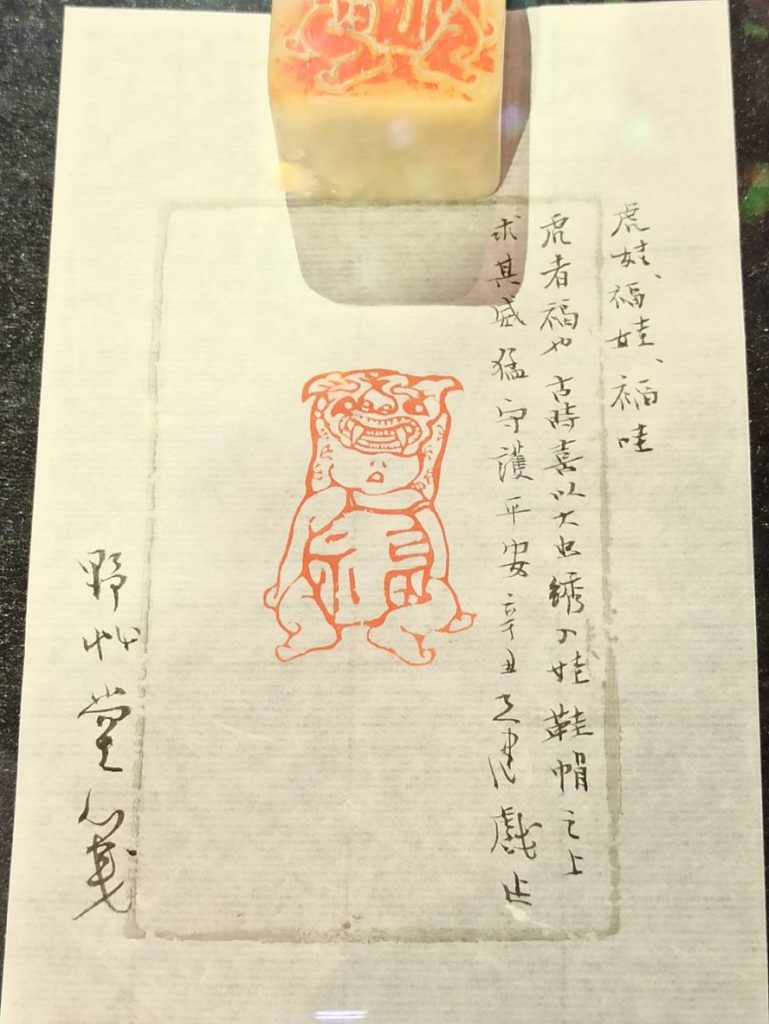 虎娃、福娃、福哇
虎者福也古時喜以大虫綉娃鞋帽之上
求其威猛守護平安辛丑戲
野艸堂箋
福